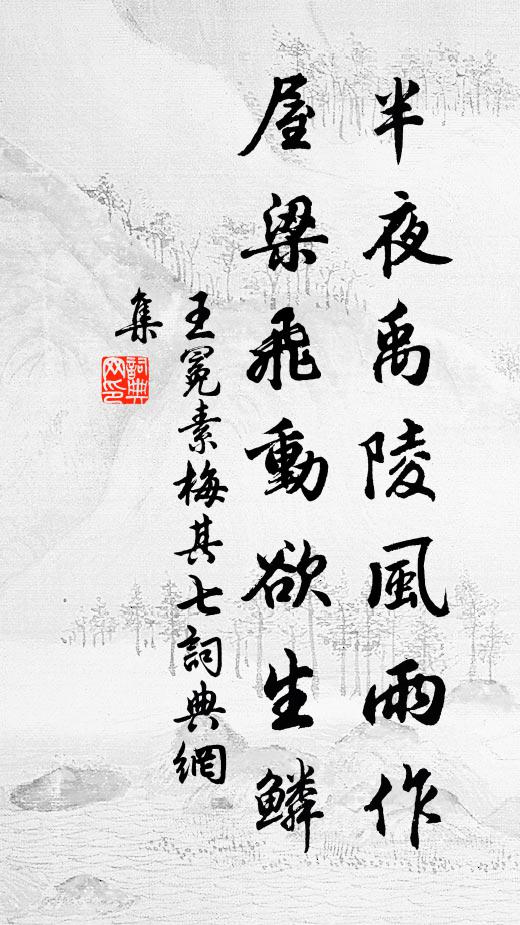 半夜禹陵風雨作
屋梁飛動欲生鱗
王冕素梅其七詞典網
集
詞典
网印